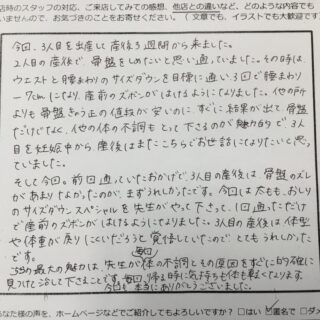 店時のスタッフの対応、ご来店してみての感想、他店との違いなど、どのような内容でも
いませんので、お気づきのことをお寄せください。(文章でも、イラストでも大歓迎です
今回、3人目を出産して産後3週間から来ました。
2人目の産後で、骨盤をしめたいと思い通っていました。その時は、
ウエストと腰まわりのサイズダウンを目標に通い3回で腰まわり
-7cmになり、産前のズボンがはけるようになりました。他の所
よりも骨盤きょう正の値段が安いのに、すぐに結果が出て、骨盤
だけでなく、他の体の不調もとって下さるのが魅力的で、3人
目を妊娠中から産後はまたこちらでお世話になりたいと思っ
ていました。
そして今回。前回通っていたおかげで、3人目の産後は、骨盤のズレ
があまりなかったのが、まずうれしかったです。今回は太もも、おしり
のサイズダウンスペシャルを先生がやって下さって、1回通っただけ
で産前のズボンがはけるようになりました。3人目の産後は体型
や体重が戻りにくいだろうと覚悟していたのでとてもうれしかった
です。
最大の魅力は、先生が毎回体の不調とその原因をすぐに的確に
見つけて治して下さることです。毎回、帰る時に気持ちも体も軽くなります
今回も本当にありがとうございました。
なた様の声を、ホームページなどでご紹介してもよろしいですか? □はい ☑匿名で □